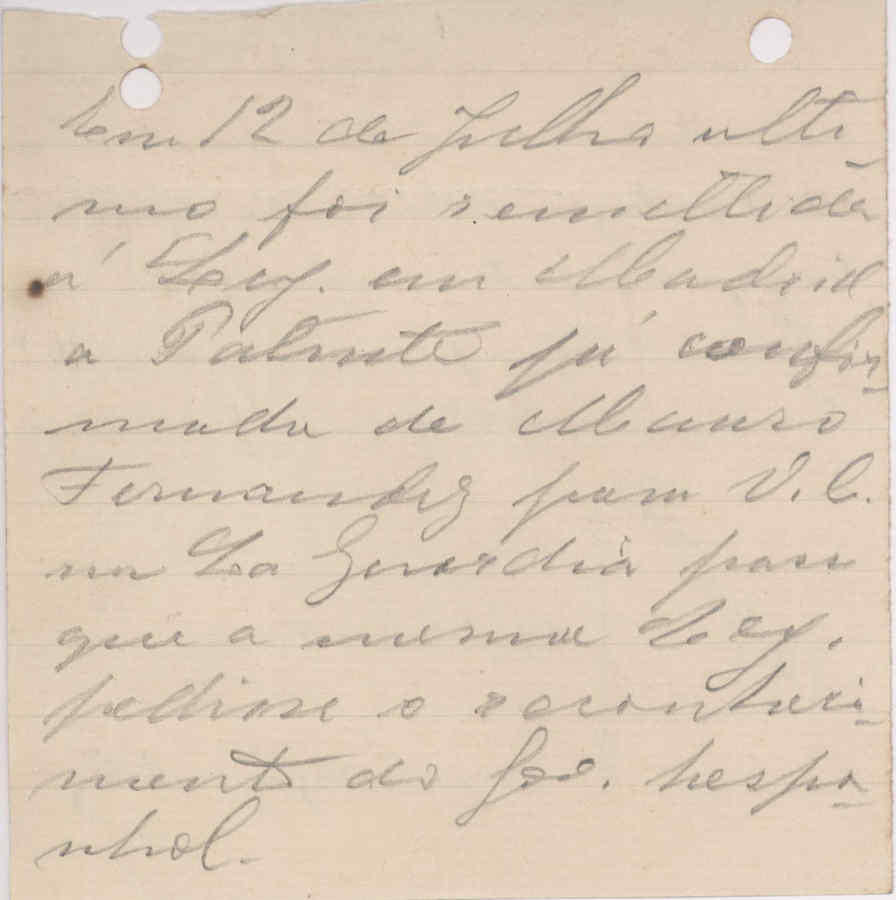 Em 12 de Julho ulti-
mo foi remettida
á Leg. em Madrid
a Patente já confir-
mada de Mauro
Fernandez para V. C.
na La Guardia para
que a mesma Leg.
pedisse o reconheci-
mento do Gov. hespa-
nhol.